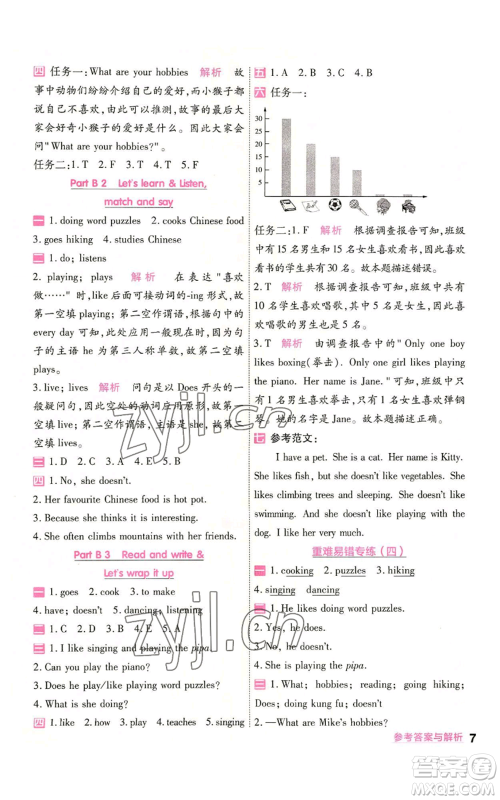 四 任务一:What are your hobbies 解析 故
事中动物们纷纷介绍自己的爱好,而小猴子都
自己不喜欢,由此可以推测,故事的最后,大
家会好奇小猴子的爱好。因此,大家会问
"What are your hobbies?"。
任务二:1. T 2. F 3. T 4. T 5. F
Part B 2 Let's learn & Listen,
match and say
一 1. doing word puzzles 2. cooks Chinese food
3. goes hiking 4. studies Chinese
二 1. do; listens
2. playing; plays 解析 本题考查"喜欢
做……"时,like 后面可接动词的-ing形式,故
第一空填 playing;第二空作谓语,根据句中的
every day 可知,该句为一般现在时,且句子的
主语 he 为第三人称单数,故第二空填
plays。
3. live; lives 解析 问句是以Does开头的一
般疑问句,因此空处的动词用原形,故第一空
填live;第二空作谓语,主语是she,故第二空
填lives。
三 1. D 2. C 3. A 4. B 5. E
四 1. No, she doesn't.
2. Her favourite Chinese food is hot pot.
3. Because the food there is yummy.
4. She often climbs mountains with her friends.
Part B 3 Read and write &
Let's wrap it up
一 1. goes 2. cook 3. to make
4. have; doesn't 5. dancing; listening
二 1. C 2. D 3. B 4. E 5. A
三 1. I like singing and playing the pipa.
2. Can you play the piano?
3. Does he play/like playing word puzzles?
4. My mother doesn't like dancing.
四 1. like 2. how 3. play 4. teaches 5. singing
五 1. A 2. D 3. C 4. B
六 任务一:
30
25
20
15
10
5
任务二:1. F 解析 根据调查报告可知,班级
中有15名男生和15名女生喜欢看书,故喜欢
看书的学生共有30名。故本题描述错误。
2. T 解析 根据调查报告可知,班级中有10名男生
喜欢唱歌,其中5名是男生,5名是女生。
3. T 解析 由调查报告中的"Only one boy
likes boxing(拳击). Only one girl likes playing
the piano. Her name is Jane."可知,班级中只
有1名男生喜欢拳击,1名女生喜欢弹钢
琴,她的名字是Jane。故本题描述正确。
七 参考范文:
I have a pet. She is a cat. Her name is Kitty.
She likes fish. She doesn't like vegetables. She
likes climbing trees and sleeping. She doesn't like
swimming. And she doesn't like playing with the
dog. I like her very much.
重难易错专练(四)
一 1. cooking 2. puzzles 3. hiking
4. singing dancing
二 1. He likes doing word puzzles.
2. Yes, he does.
3. No, he doesn't.
4. She is playing the pipa.
三 1. What; hobbies; reading; going hiking;
Does; doing kung fu; doesn't
2. —What are Mike's hobbies?
参考答案与解析 7
zyjl.cn
zyjl.cn
答案圈
MXQE.COM